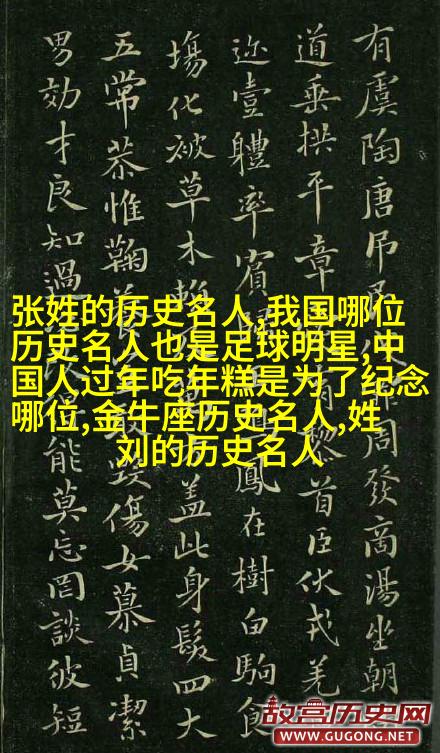 有虞陶唐弔民周發商湯坐朝
道垂拱平章育黎首臣伏戎羌
迩壹體率賓歸鳳在樹白駒食
塲化被草木賴方盖此身髮四大
五常恭惟鞠養敢毀傷女慕貞潔
男効才良知過得能莫忘罔談彼短
张姓的历史名人,我国哪位
历史名人也是足球明星,中
国人过年吃年糕是为了纪念
哪位,金牛座历史名人,姓
刘的历史名人
故宫历史网
WWW.GUGONG.NET